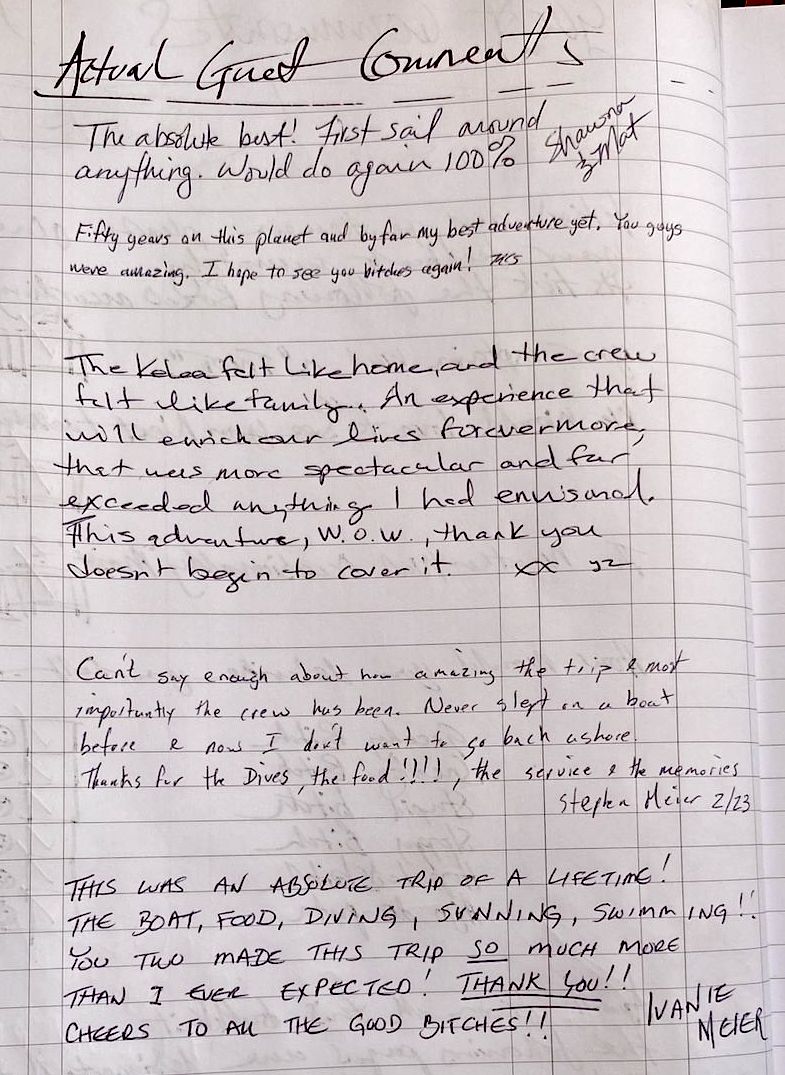 Actual Guest Comments
The absolute best! First sail around
anything. Would do again 100%
Shawna
& Mat
Fifty years on this planet and by far my best adventure yet. You guys
were amazing. I hope to see you bitches again!
The Kolea felt like home, and the crew
felt like family. An experience that
will enrich our lives forevermore,
that was more spectacular and far
exceeded anything I had envisond.
This adventure, W.O.W., thank you
doesn't begin to cover it. xx
Can't say enough about how amazing the trip & most
importantly the crew has been. Never slept on a boat
before & now I don't want to go back ashore.
Thanks for the Dives, the food!!!!, the service & the memories
Stephen Meier 2/23
THIS WAS AN ABSOLUTE TRIP OF A LIFETIME!
THE BOAT, FOOD, DIVING, SUNNING, SWIMMING!!
YOU TWO MADE THIS TRIP SO MUCH MORE
THAN I EVER EXPECTED! THANK YOU!!
CHEERS TO ALL THE GOOD BITCHES!!
IVANIE
MEIER